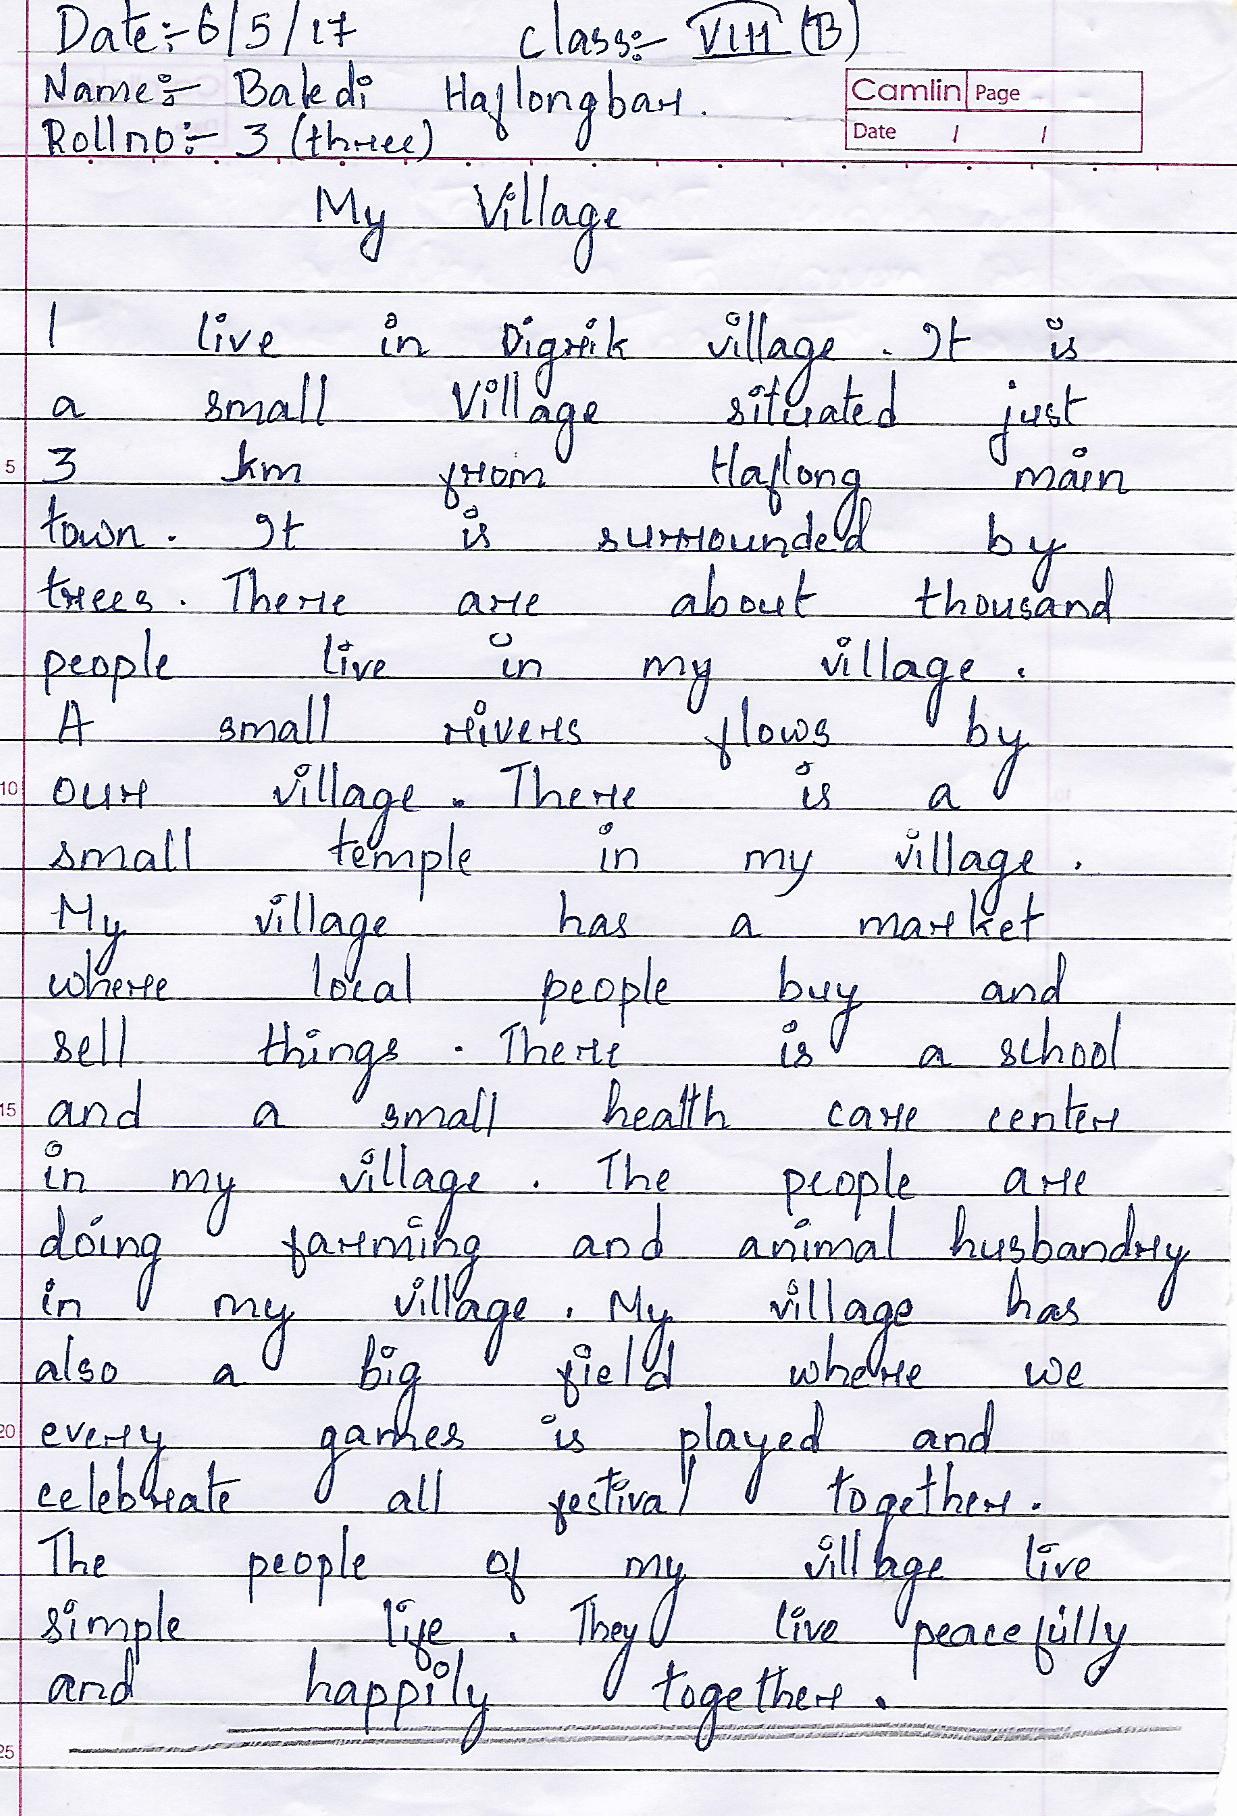 Date:- 6/5/17 Class:- VIII (B)
Name:- Baledi Haflongbar.
Roll no:- 3 (three)
Camlin Page
Date / /
My Village
I live in Digrik village. It is
a small Village situated just
5 3 km from Haflong main
town. It is surrounded by
trees. There are about thousand
people live in my village.
A small rivers flows by
10 our village. There is a
small temple in my village.
My village has a market
where local people buy and
sell things. There is a school
15 and a small health care center
in my village. The people are
doing farming and animal husbandry
in my village. My village has
also a big field where we
20 every games is played and
celebrate all festival together.
The people of my village live
simple life. They live peacefully
and happily together.
25